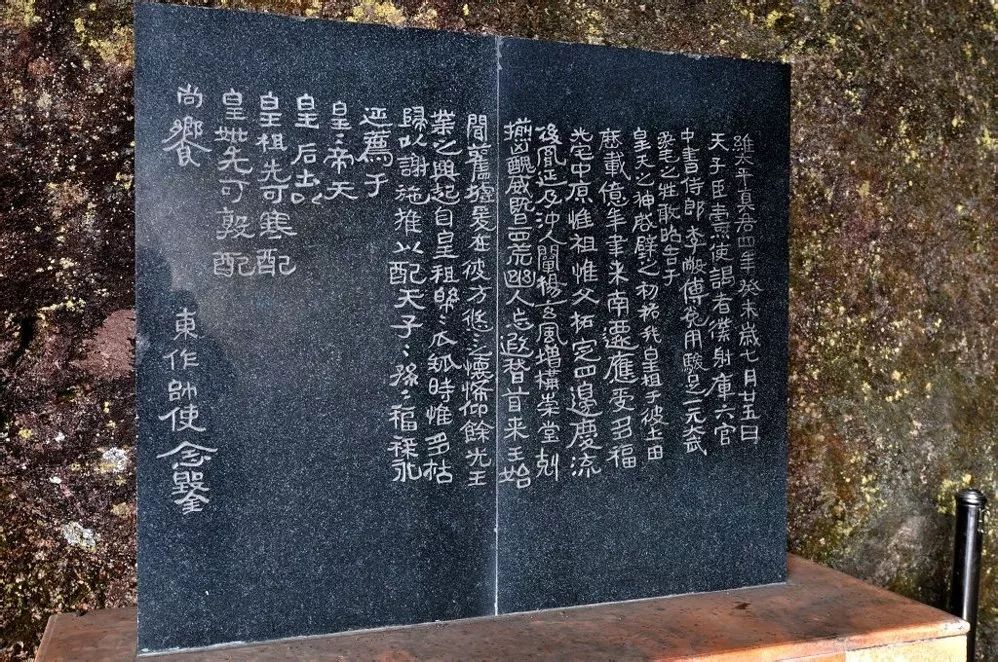 維太平真君四年癸未歲七月廿五日
天子臣燾使謁者僕射庫六官
中書侍郎李敞傅㝹用駿足一元大武
柔毛之牲敢昭告于
皇天之神啟辟之初祐我皇祖于彼土田
歷載億年聿来南遷應受多福
光宅中原惟祖惟父拓定四邊慶流
後胤延及沖人闡揚玄風增構崇堂剋
揃凶醜威暨四荒幽人忘遐稽首来王始
聞舊墟爰在彼方悠〻之懷希仰餘光王
業之興起自皇祖緜〻瓜瓞時惟多祜
歸以謝施推以配天子〻孫〻福祿永
延薦于
皇〻帝天
皇 后土以
皇祖先可寒配
皇妣先可敦配
尚饗
東作帥使念鑿